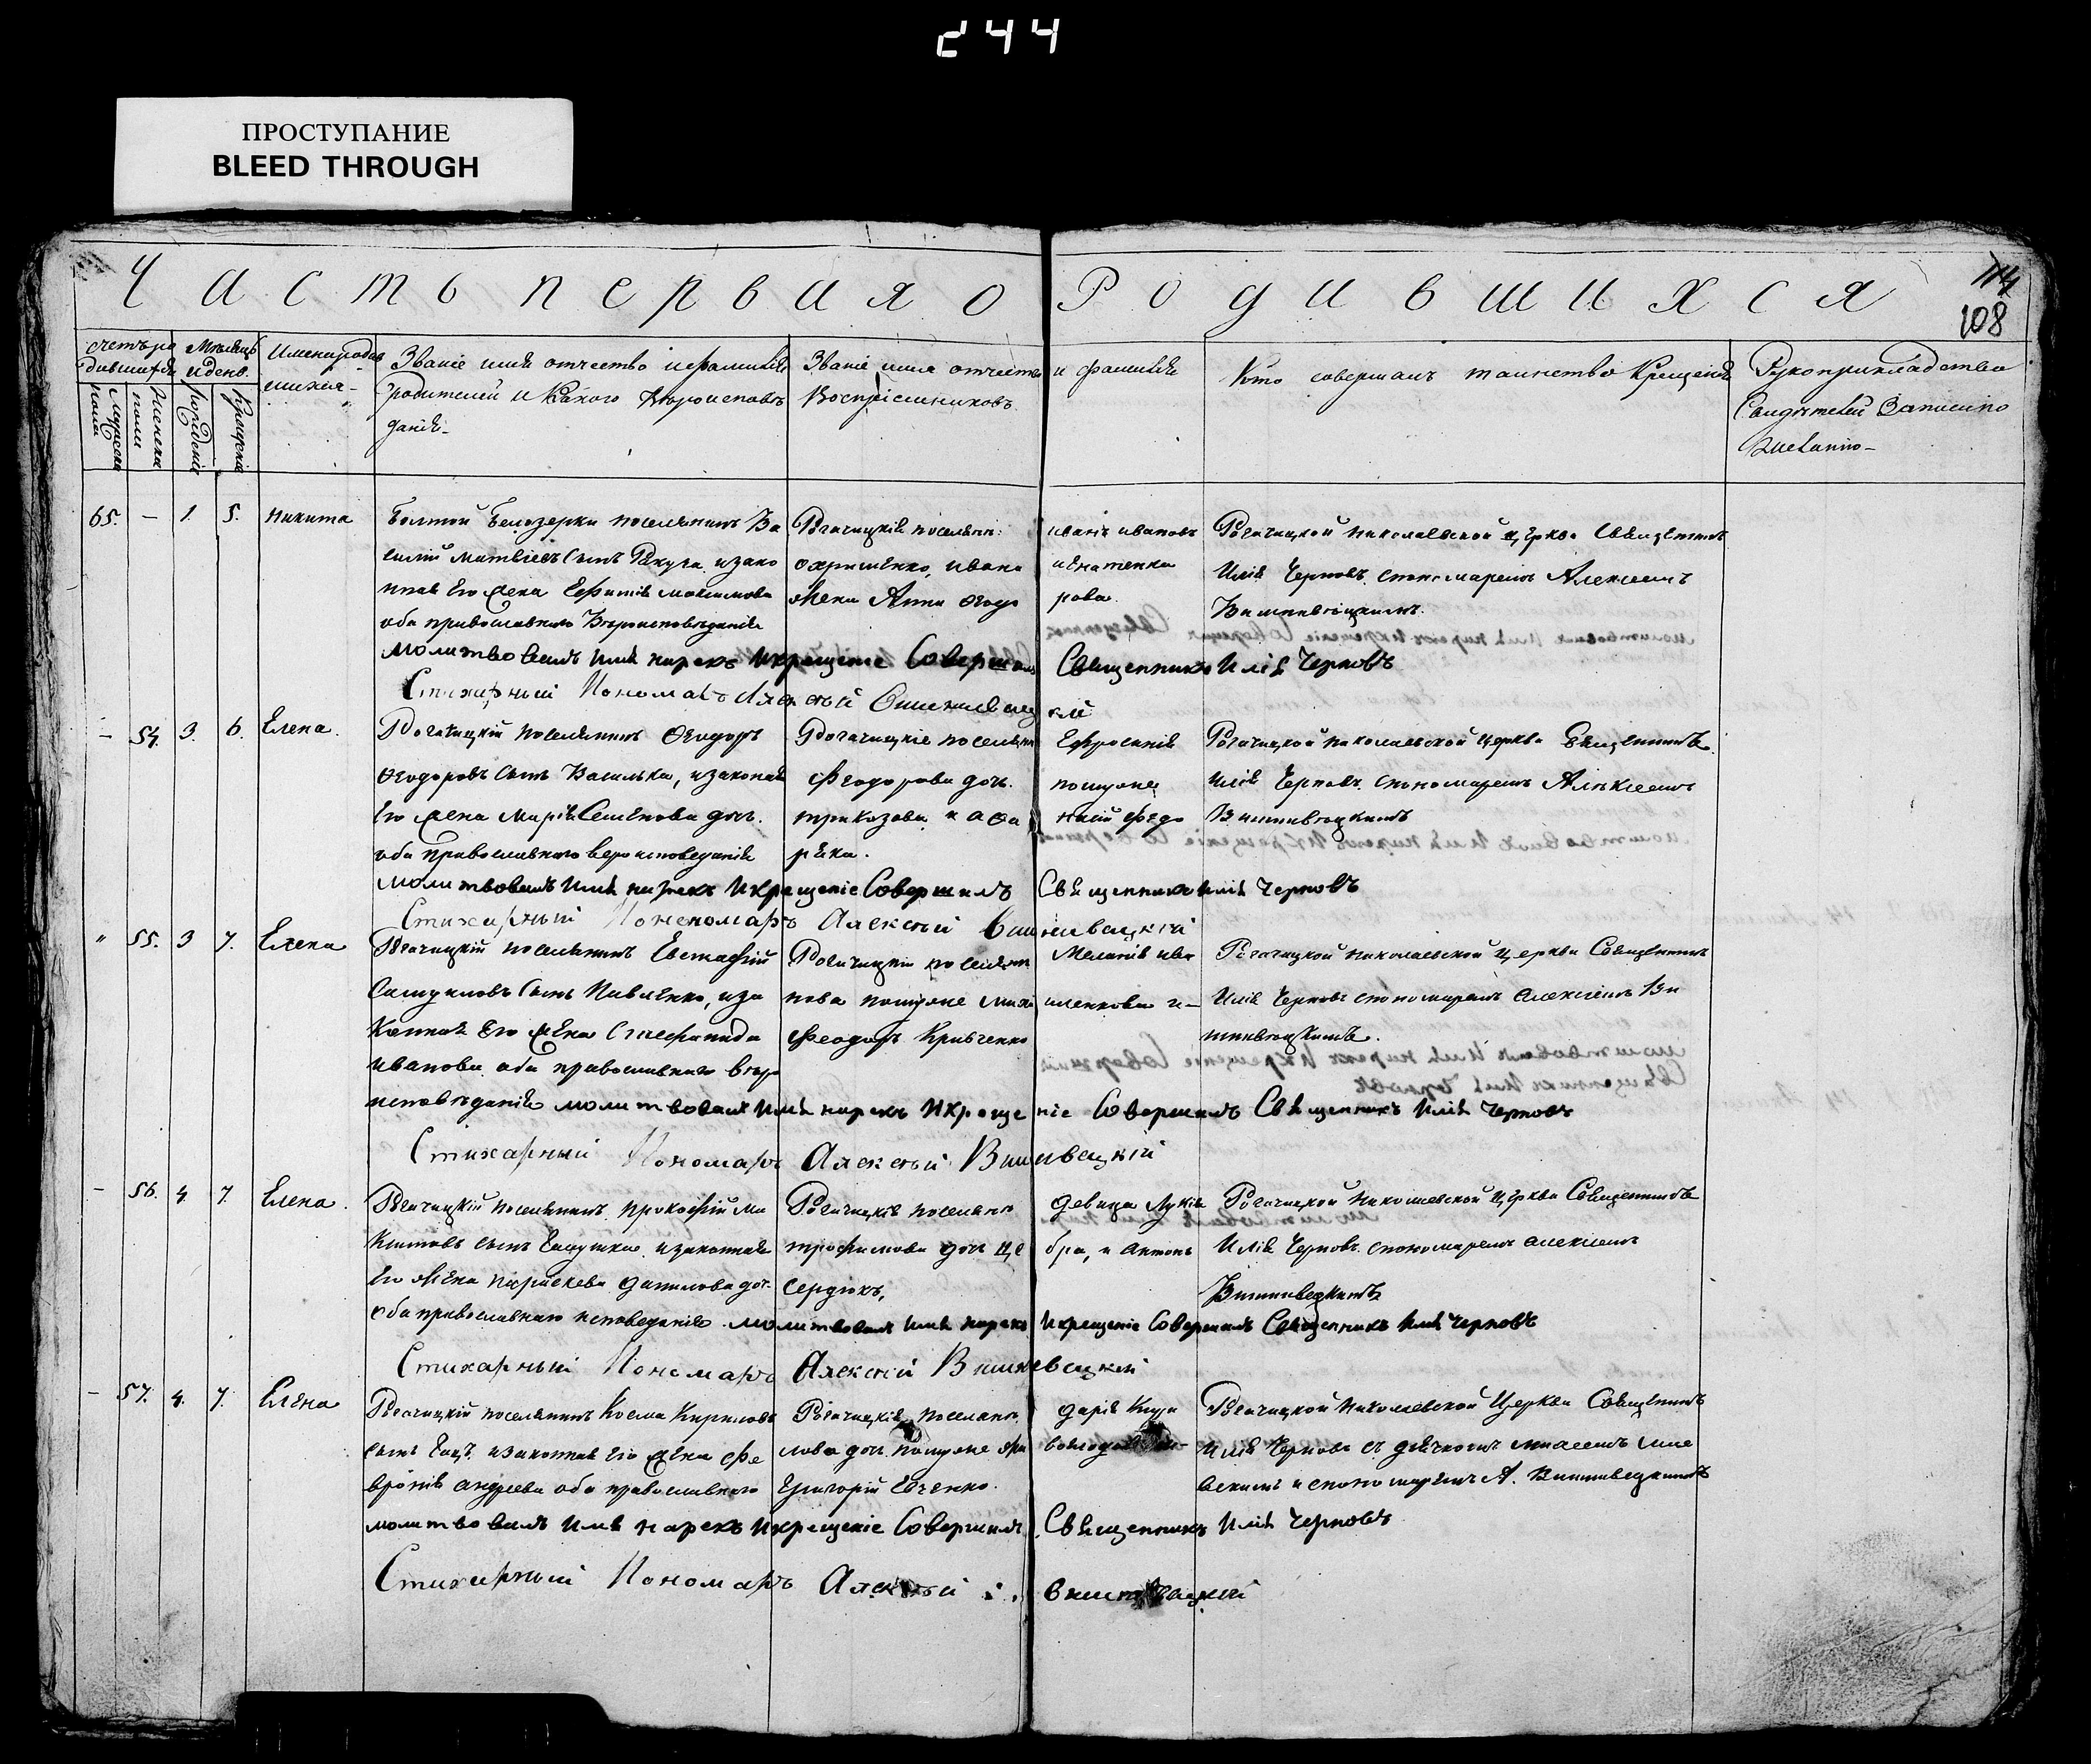 244
ПРОСТУПАНИЕ
BLEED THROUGH
Часть перваяо Родившихся
114
108
счетъ родившихся
Мѣсяцъ и день
Имена родившихся
Званіе имя отчество и фамилія родителей и какого вѣроисповѣданія
Званіе имя отчество и фамилія Воспріемниковъ
Кто совершалъ таинство Крещенія
Рукоприкладство Свидѣтелей Записи по желанію
мужеска пола
женска пола
рожденіе
крещенія
65. — 1. 5. Никита
Болшой Белозерки поселянинъ Ва
силій Матвѣевъ сынъ и зако
нная его жена Ефимія Максимова
оба православнаго Вѣроисповѣданія
Рогачицкіе поселян:
иванъ ивановъ
охрименко, ивана
игнатенка
жена Анна Ѳеодо
рова.
Рогачицкой николаевской церкви Священникъ
Илія Черновъ спономаремъ Алексеемъ
Вишнивецкимъ.
Молитвовалъ имя нарекъ и крещеніе Совершалъ Священникъ Илія Черновъ
Стихарный Пономарь Алексѣй Вишнивецкій
— 54. 3. 6. Елена.
Рогачицкій поселянинъ Ѳеодоръ
Ѳеодоровъ сынъ Василька, и законная
его жена Марія Семенова доч.
оба православнаго вероисповеданія
Рогачицкіе поселян
Ефросинія
Феодорова доч.
трикозова и
рѣка.
Рогачицкой николаевской церкви Священникъ
Илія Черновъ спономаремъ Алексеемъ
Вишнивецкимъ
Молитвовалъ имя нарекъ и крещеніе Совершилъ Священникъ Илія Черновъ
Стихарный Пономарь Алексѣй Вишнивецкій
" 55. 3 7. Елена
Рогачицкій поселянинъ Евстафій
Самуиловъ сынъ Павленко, и за
конная его жена Стефанида
Иванова оба православнаго вѣро
исповѣданія
Рогачицкіе поселян
Меланія ива
нова
Феодоръ Кривченко
Рогачицкой николаевской церкви Священникъ
Илія Черновъ спономаремъ Алексіемъ Ви
шнивецкимъ.
молитвовалъ имя нарекъ и крещеніе Совершалъ Священникъ Илія Черновъ
Стихарный Пономарь Алексѣй Вишнивецкій
— 56. 4 7. Елена.
Рогачицкій поселянинъ прокофій Ма
ксимовъ сынъ и законная
его жена параскева данилова доч.
оба православнаго исповеданія
Рогачицкіе поселяне
девица Лукія
трофимова доч. Це
бра, и антонъ
Сердюкъ,
Рогачицкой Николаевской церкви Священникъ
Илія Черновъ спономаремъ Алексіемъ
Вишниведкимъ
молитвовалъ имя нарекъ и крещеніе Совершалъ Священникъ Илія Черновъ
Стихарный Пономарь Алексѣй Вишневецкій
— 57. 4. 7. Елена
Рогачицкій поселянинъ Косма Кириловъ
сынъ и законная его жена Фе
вронія андреева оба православнаго
Рогачицкіе поселяне
дарія Кири
лова доч.
Григорій Евченко.
Рогачицкой Николаевской Церкви Священникъ
Илія Черновъ съ дьячкомъ
и спономаремъ А. Вишниведкимъ
молитвовалъ имя нарекъ и крещеніе Совершилъ Священникъ Илія Черновъ
Стихарный Пономарь Алексѣй Вишневецкій